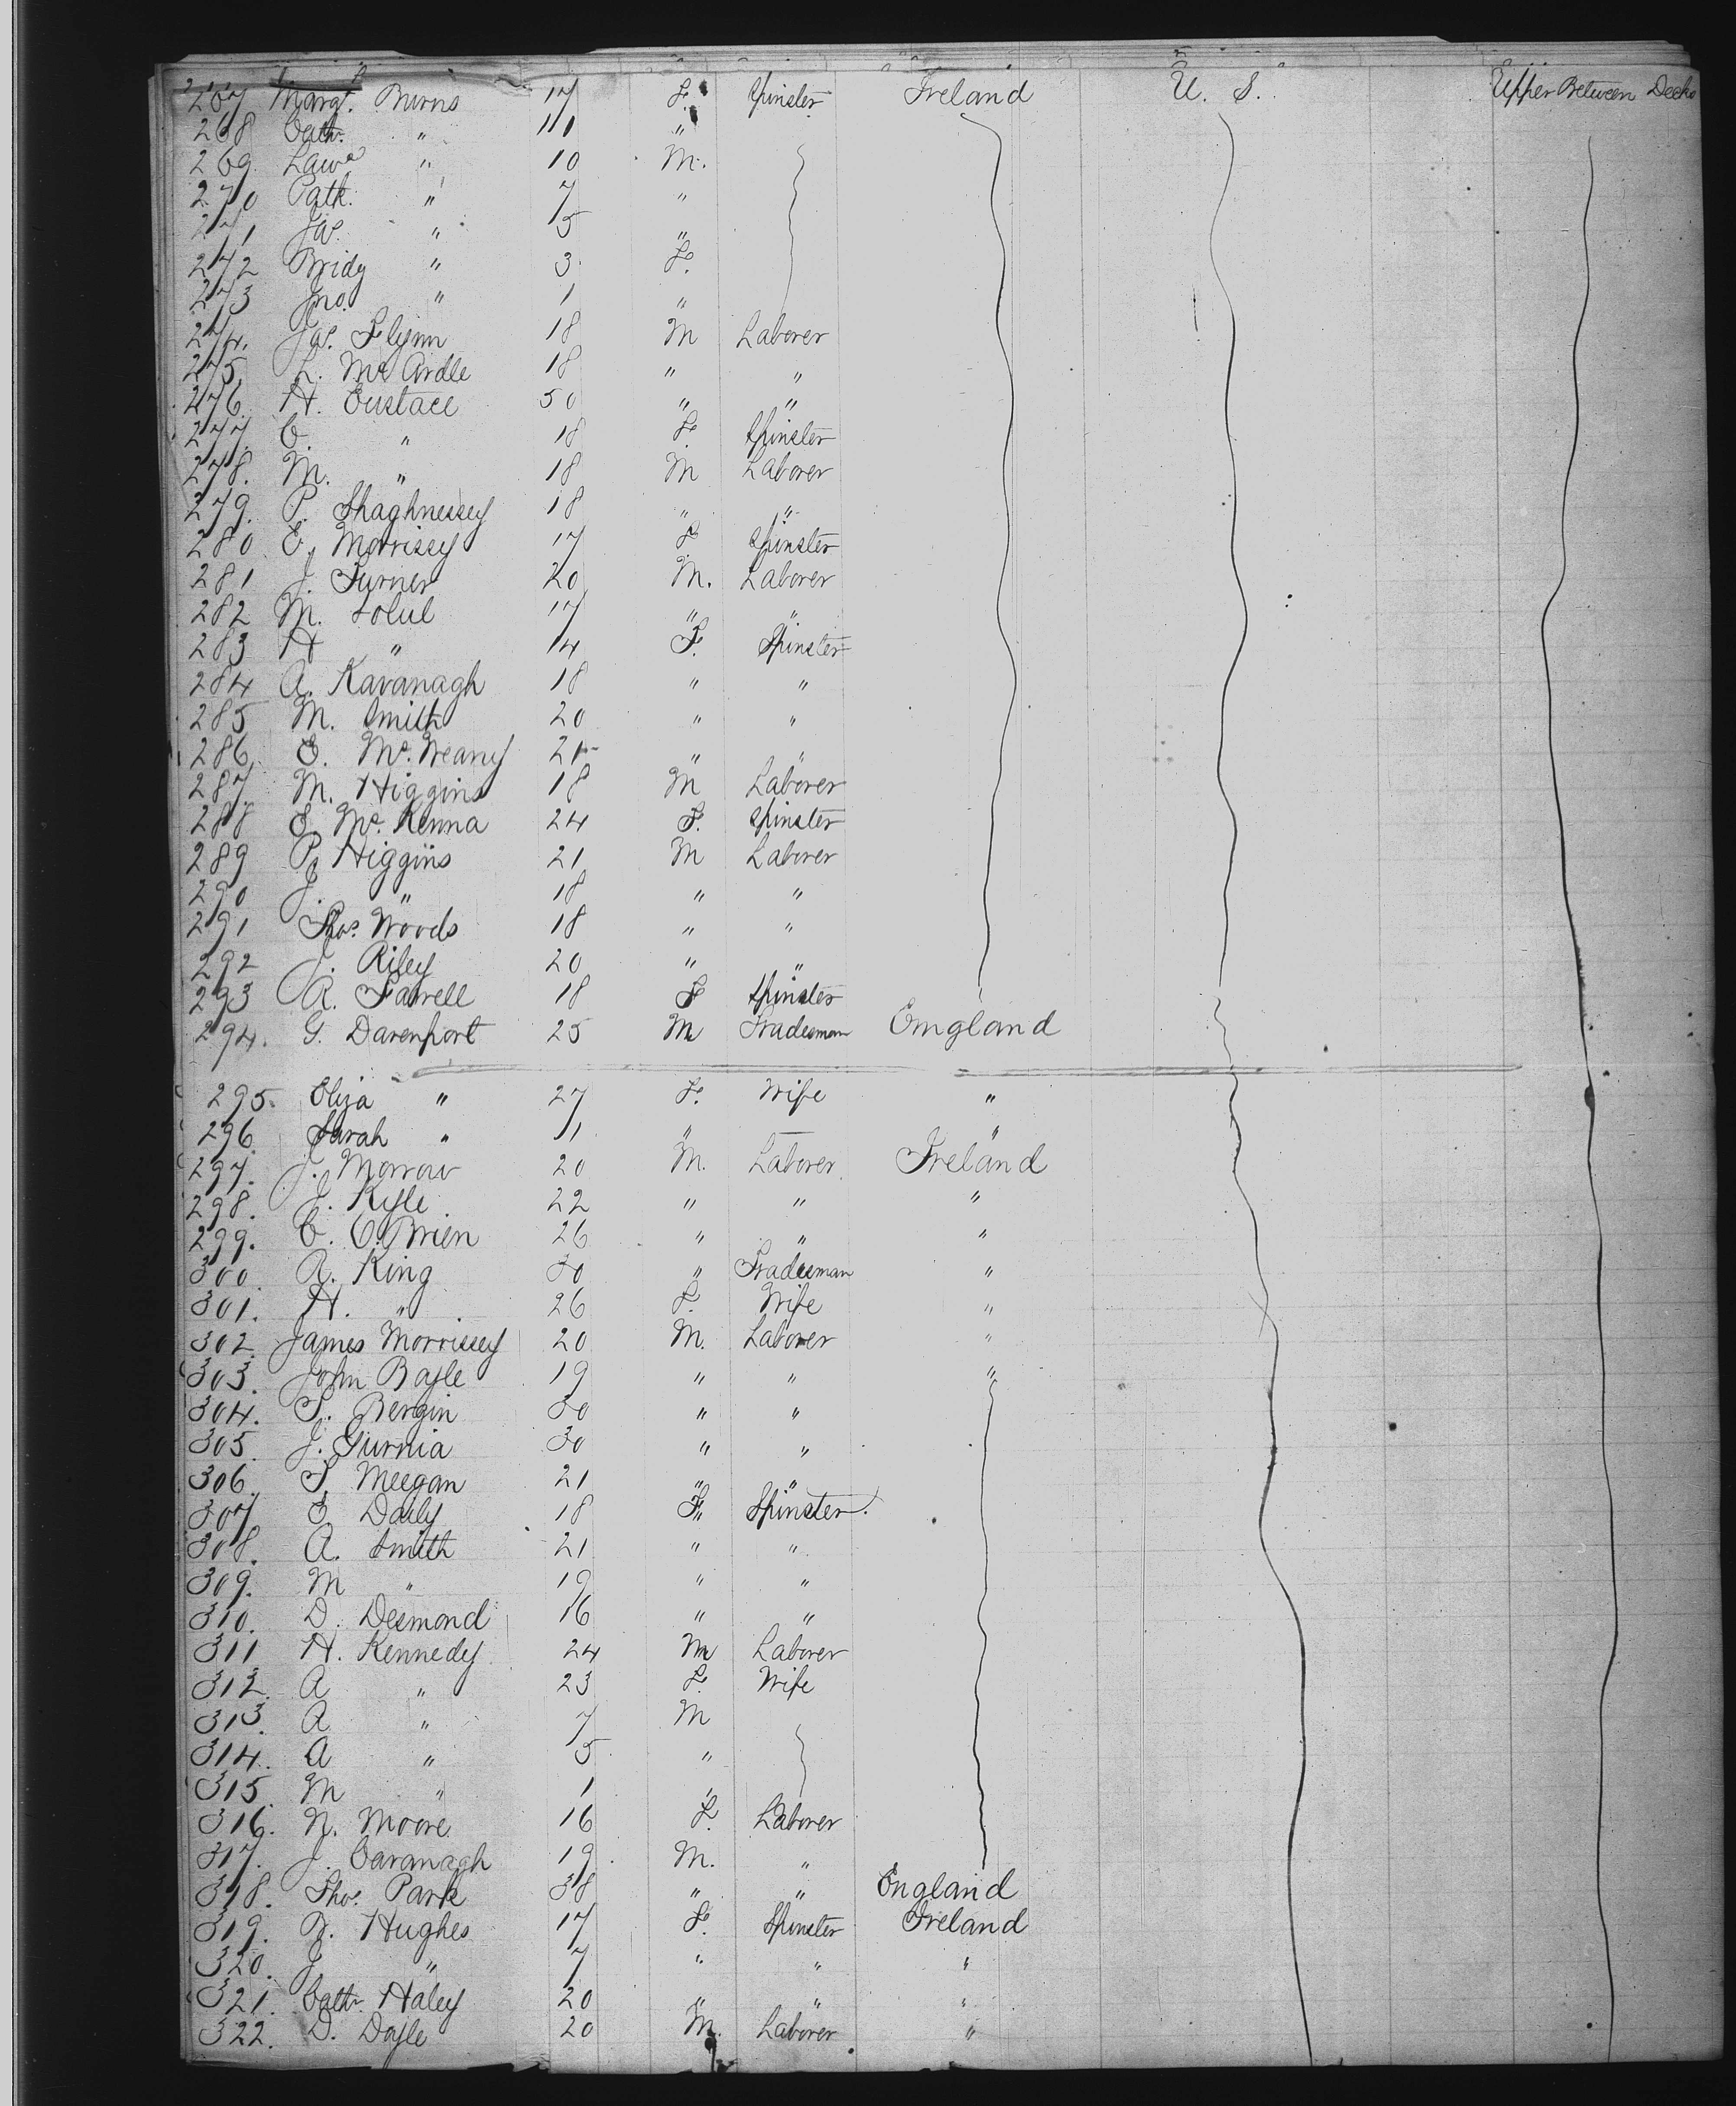 267 Margt. Burns 17 F. Spinster Ireland U. S. Upper Between Decks
268 Cath. " 11 "
269 Lawe " 10 M.
270 Patk. " 7 "
271 Jas. " 5 "
272 Bridy " 3 F.
273 Jno. " 1 "
274. Jas. Flynn 18 M Laborer
275. L. McArdle 18 " "
276. H. Eustace 50 " "
277. C. " 18 F. Spinster
278. M. " 18 M Laborer
279. P. Shaghnessey 18 " "
280 E. Morrissy 17 F Spinster
281 J. Turner 20 M. Laborer
282 M. 17 " "
283 H " 14 F. Spinster
284 A. Kavanagh 18 " "
285 M. Smith 20 " "
286. E. Mc. 21 " "
287. M. Higgins 18 M Laborer
288 E. Mc. Kenna 24 F. Spinster
289 P. Higgins 21 M Laborer
290 J. " 18 " "
291 Thos. Woods 18 " "
292 J. Riley 20 " "
293 R. Farrell 18 F Spinster
294. G. Davenport 25 M Tradesman England
295. Eliza " 27 F. Wife "
296. Sarah " 1 " "
297. J. Morrow 20 M. Laborer Ireland
298. J. Kyle 22 " " "
299. C. O'Brien 26 " " "
300 R. King 30 " Tradesman "
301. H. " 26 F. Wife "
302. James Morrissey 20 M. Laborer "
303. John Boyle 19 " " "
304. T. Bergin 30 " "
305. J. Gurnia 30 " "
306. T. Meegan 21 " "
307 E. Daily 18 F. Spinster.
308. A. Smith 21 " "
309. M " 19 " "
310. D. Desmond 16 " "
311 H. Kennedy 24 M Laborer
312. A " 23 F. Wife
313. A " 7 M
314. A " 5 "
315. M " 1 "
316. N. Moore 16 F. Laborer
317. J. Cavanagh 19 M. "
318. Thos. Park 38 " " England
319. B. Hughes 17 F. Spinster Ireland
320. J " 7 " " "
321. Cath. Haley 20 " " "
322. D. Doyle 20 M. Laborer "